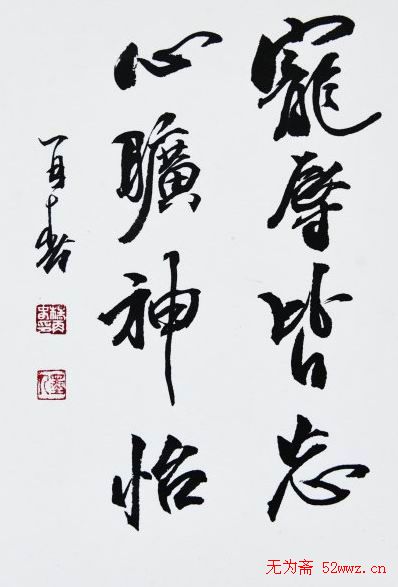 寵辱皆忘
心曠神怡
无为斋 52wwz.cn